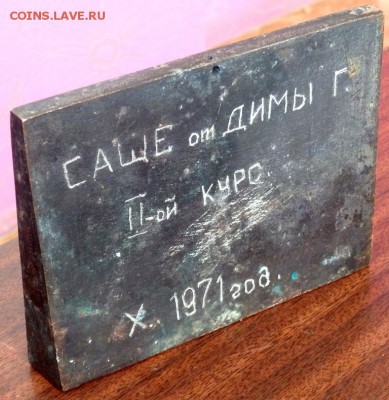 COINS.LAVE.RU
САШЕ от ДИМЫ Г.
II-ой КУРС.
X. 1971 год.